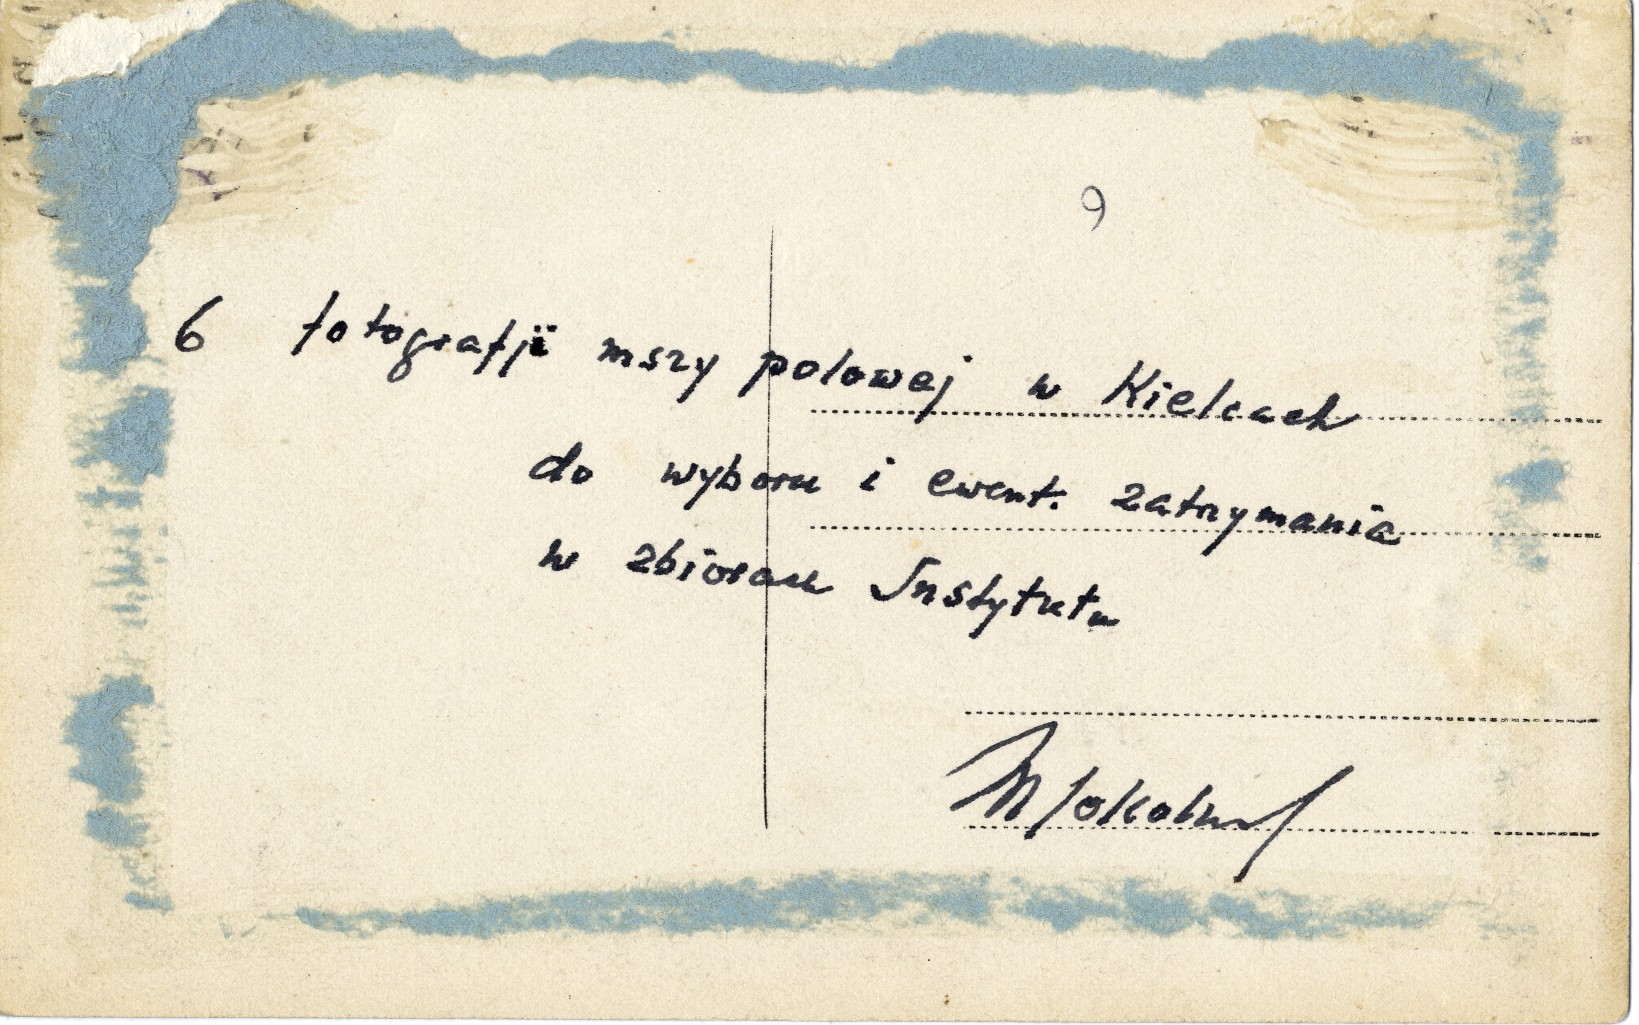 9
6 fotografji mszy polowej w Kielcach
do wyboru i ewent. zatrzymania
w zbiorach Instytutu